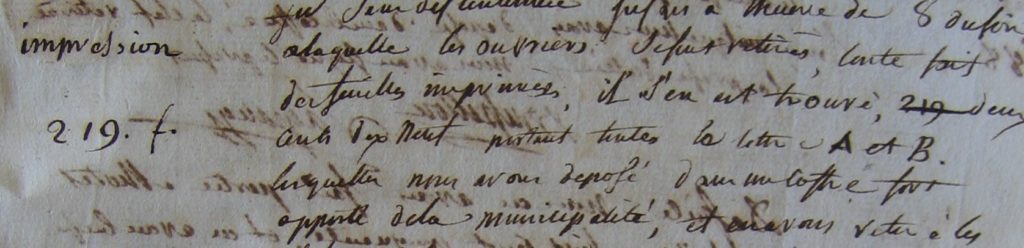 jusqu'à l'heure de 8 du soir
impression
a laquelle les ouvriers se sont retirés, conte fait
des feuilles imprimées, il s'en est trouvé, 219 deux
219. f.
cents dix neuf portant toutes la lettre A et B.
lesquelles nous avons déposé dans un coffre fort
apporté de la municipalité, et en avons retiré les